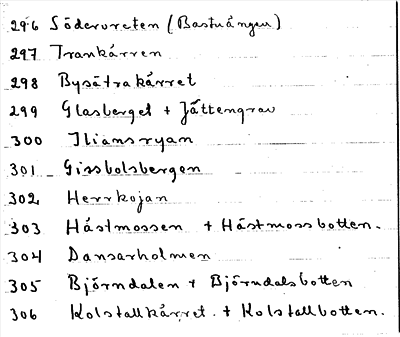 296 Södervreten (Bastuängen)
297 Trankärren
298 Bysätrakärret
299 Glasberget + Jättengrav
300 Iliansryan
301 Gissbolsbergen
302 Herrkojan
303 Hästmossen + Hästmossbotten.
304 Dansarholmen
305 Björndalen + Björndalsbotten
306 Kolstallkärret. + Kolstallbotten.